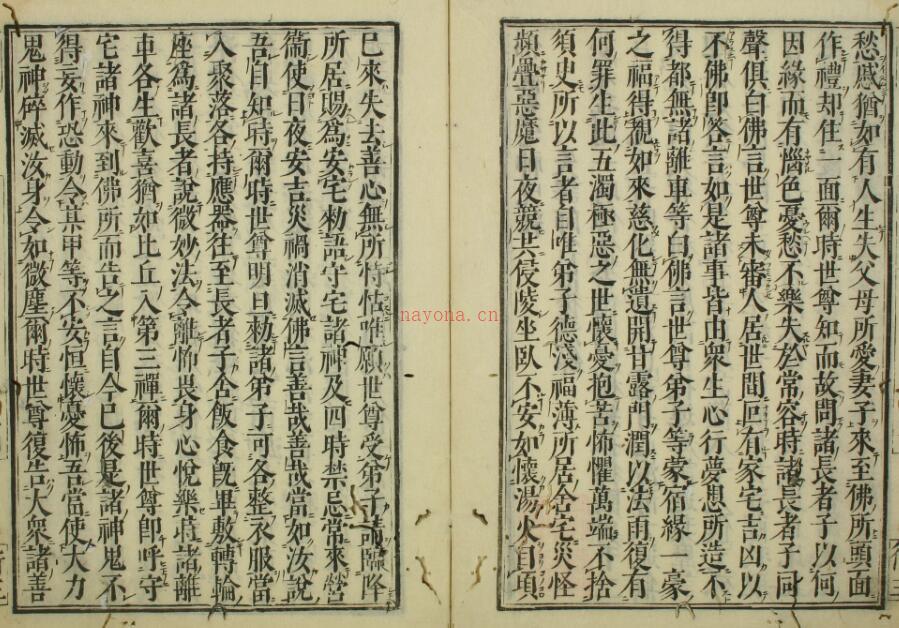 愁慼猶如有人生失父母所愛妻子來至佛所頭面
作禮却住一面爾時世尊知而故問諸長者子以何
因緣而有惱色憂愁不樂失於常容時諸長者子同
聲俱白佛言世尊未審人居世間囙有家宅吉凶以
不佛卽答言如是諸事皆由衆生心行夢想所造不
得都無諸離車等白佛言世尊弟子等蒙宿緣一豪
之福得覩如來慈化無遺開甘露門潤以法雨復有
何罪生此五濁極惡之世懷憂抱苦怖懼萬端不捨
須臾所以言者自唯弟子德淺福薄所居舍宅災怪
頻疊惡魔日夜競共侵陵坐臥不安如懷湯火自項
已來失去善心無所恃怙唯願世尊受弟子請臨降
所居賜爲安宅勅語守宅諸神及四時禁忌常來營
衞使日夜安吉災禍消滅佛言善哉善哉當如汝說
吾自知時爾時世尊明旦勅諸弟子可各整衣服當
入聚落各持應器往至長者子舍飯食旣畢敷轉輪
座爲諸長者說微妙法令離怖畏身心悅樂時諸離
車各生歡喜猶如比丘入第三禪爾時世尊卽呼守
宅諸神來到佛所而告之言自今已後是諸神鬼不
得妄作恐動令某甲等不安恒懷憂怖吾當使大力
鬼神碎滅汝身令如微塵爾時世尊復告大衆諸善
nayona.cn